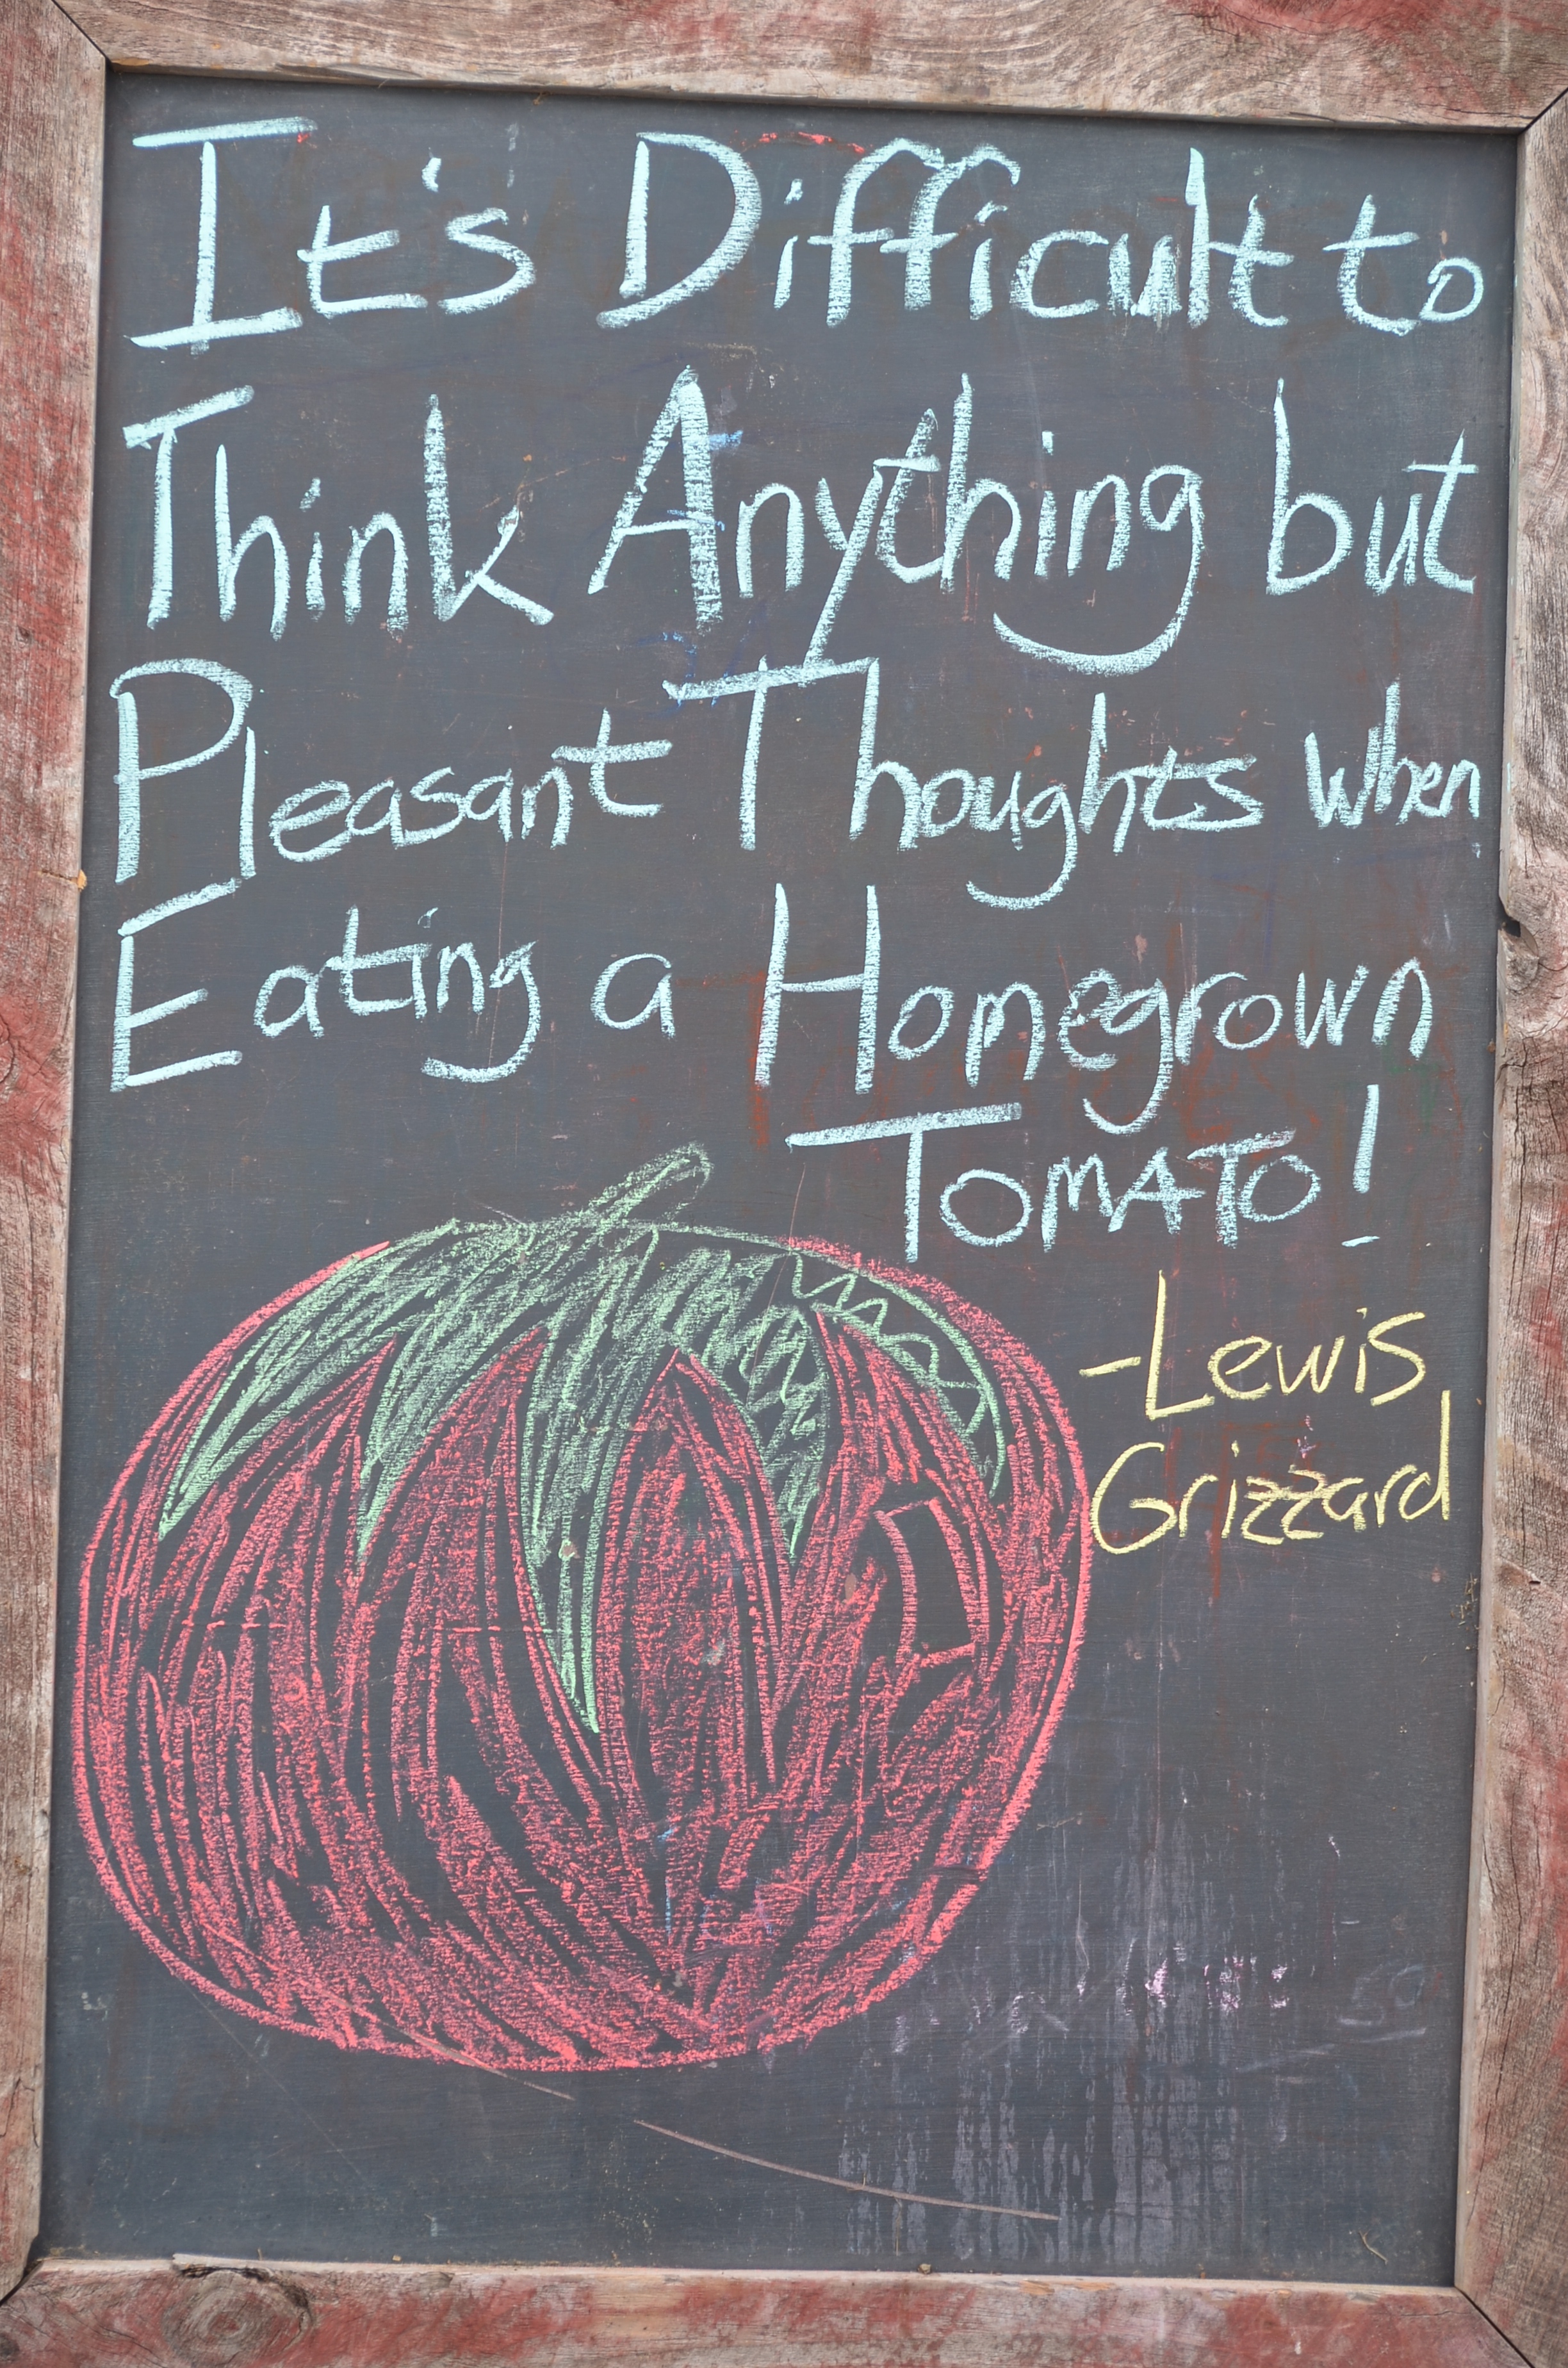 It's Difficult to
Think Anything but
Pleasant Thoughts when
Eating a Homegrown
TOMATO!
-Lewis
Grizzard